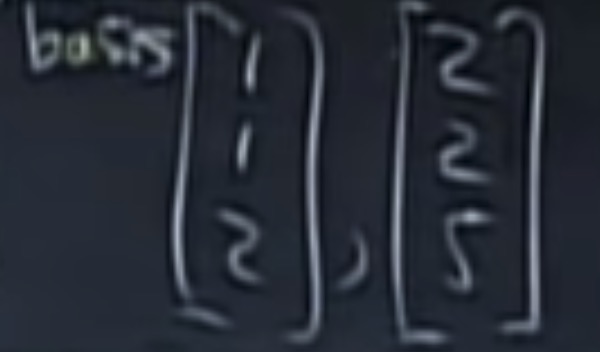 basis [1 1 2], [2 2 5]